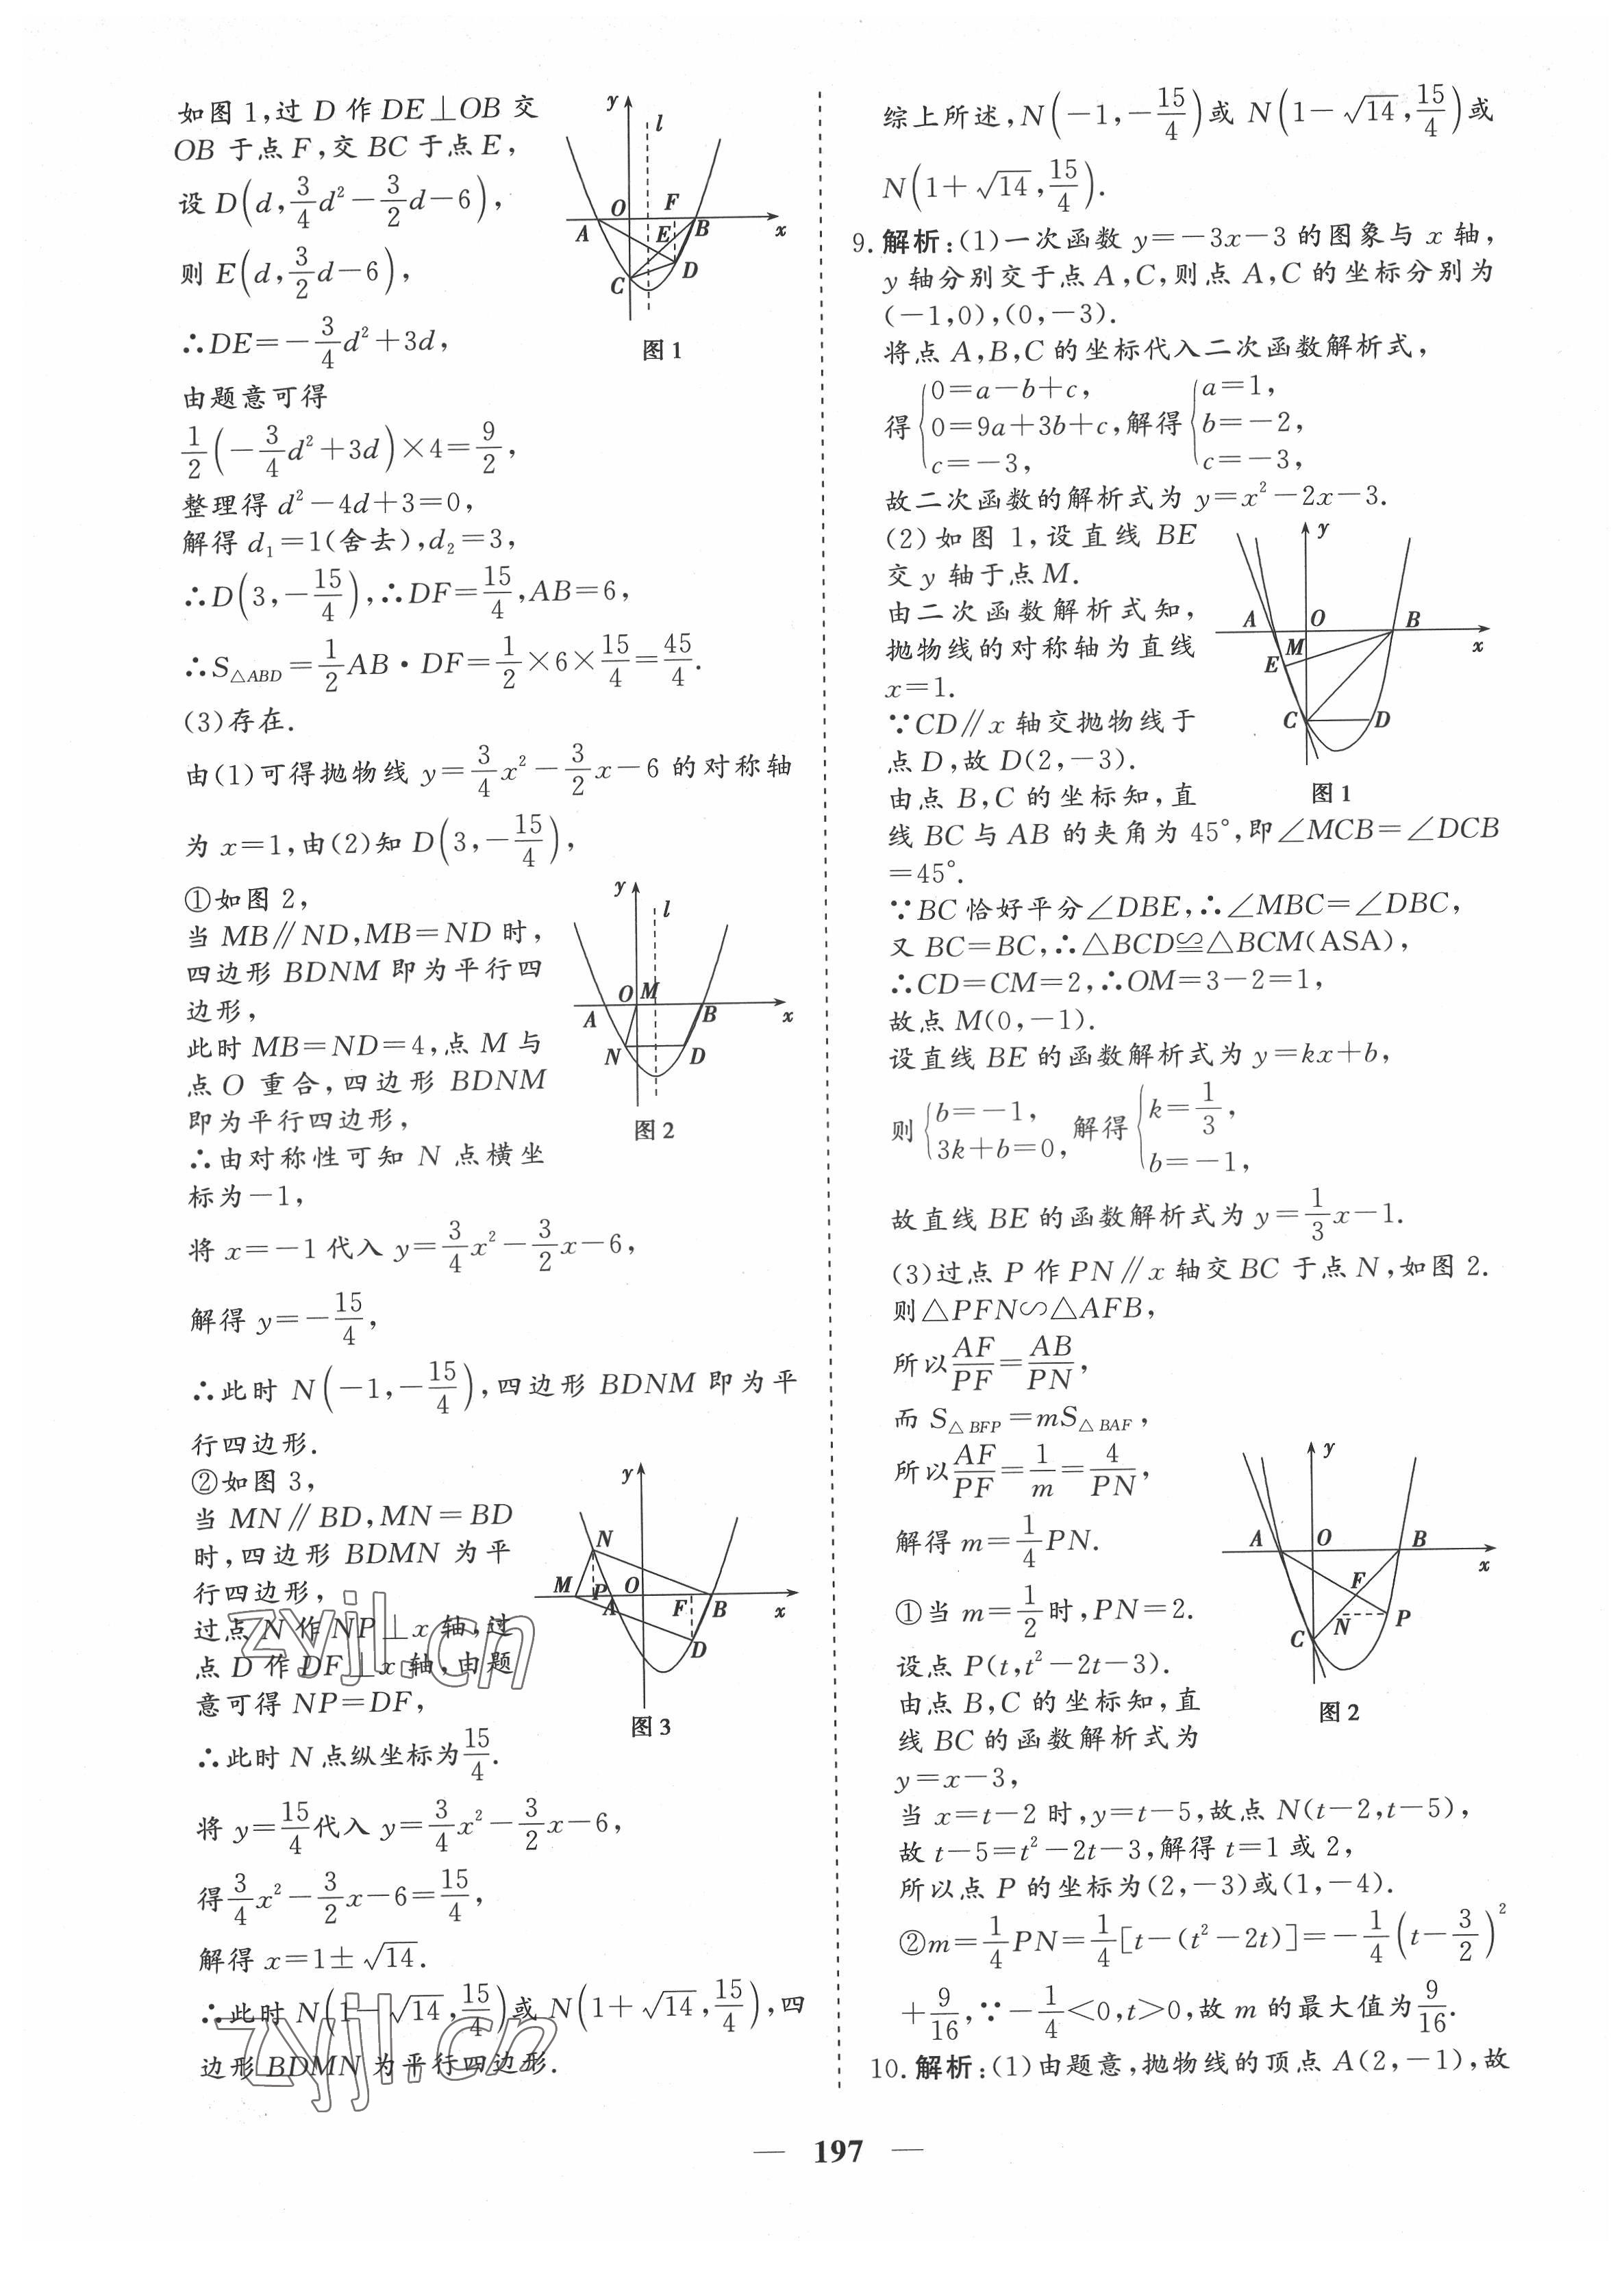 如图1,过 D 作 DE⊥OB 交
OB 于点 F,交 BC 于点 E,
设 D(d,3/4d²-3/2d-6),
则 E(d,3/2d-6),
∴DE=-3/4d²+3d,
由题意可得
1/2(-3/4d²+3d)×4=9/2,
整理得 d²-4d+3=0,
解得 d₁=1(舍去),d₂=3,
∴D(3,-15/4),∴DF=15/4,AB=6,
∴S△ABD=1/2AB·DF=1/2×6×15/4=45/4.
y
l
O
F
A
E
B
x
D
C
图1
(3)存在.
由(1)可得抛物线 y=3/4x²-3/2x-6 的对称轴
为 x=1,由(2)知 D(3,-15/4),
①如图 2,
当 MB∥ND,MB=ND 时,
四边形 BDNM 即为平行四
边形,
此时 MB=ND=4,点 M 与
点 O 重合,四边形 BDNM
即为平行四边形,
∴由对称性可知 N 点横坐
标为-1,
y
l
O M
A
B
x
N
D
图2
将 x=-1 代入 y=3/4x²-3/2x-6,
解得 y=-15/4,
∴此时 N(-1,-15/4),四边形 BDNM 即为平
行四边形.
②如图 3,
当 MN∥BD,MN=BD
时,四边形 BDMN 为平
行四边形,
过点 N 作 NP⊥x 轴,过
点 D 作 DF⊥x 轴,由题
意可得 NP=DF,
y
N
M
P
O
A
F
B
x
D
图3
∴此时 N 点纵坐标为15/4.
将 y=15/4代入 y=3/4x²-3/2x-6,
得3/4x²-3/2x-6=15/4,
解得 x=1±√14.
∴此时 N(1-√14,15/4)或 N(1+√14,15/4),四
边形 BDMN 为平行四边形.
zyjl.cn
zyjl.cn
综上所述,N(-1,-15/4)或 N(1-√14,15/4)或
N(1+√14,15/4).
9. 解析:(1)一次函数 y=-3x-3 的图象与 x 轴,
y 轴分别交于点 A,C,则点 A,C 的坐标分别为
(-1,0),(0,-3).
将点 A,B,C 的坐标代入二次函数解析式,
得{0=a-b+c, 0=9a+3b+c, c=-3, 解得{a=1, b=-2, c=-3,
故二次函数的解析式为 y=x²-2x-3.
(2)如图 1,设直线 BE
交 y 轴于点M.
由二次函数解析式知,
抛物线的对称轴为直线
x=1.
∵CD∥x 轴交抛物线于
点 D,故 D(2,-3).
由点 B,C 的坐标知,直
y
A
O
B
x
M
E
C
D
图1
线 BC 与 AB 的夹角为 45°,即∠MCB=∠DCB
=45°.
∵BC 恰好平分∠DBE,∴∠MBC=∠DBC,
又 BC=BC,∴△BCD≌△BCM(ASA),
∴CD=CM=2,∴OM=3-2=1,
故点 M(0,-1).
设直线 BE 的函数解析式为 y=kx+b,
则{b=-1, 3k+b=0, 解得{k=1/3, b=-1,
故直线 BE 的函数解析式为 y=1/3x-1.
(3)过点 P 作 PN∥x 轴交 BC 于点 N,如图 2.
则△PFN∽△AFB,
所以AF/PF=AB/PN,
而 S△BFP=mS△BAF,
所以AF/PF=1/m=4/PN,
解得 m=1/4PN.
①当 m=1/2时,PN=2.
设点 P(t,t²-2t-3).
由点 B,C 的坐标知,直
线 BC 的函数解析式为
y=x-3,
y
A
O
B
x
F
N
P
C
图2
当 x=t-2 时,y=t-5,故点 N(t-2,t-5),
故 t-5=t²-2t-3,解得 t=1 或 2,
所以点 P 的坐标为(2,-3)或(1,-4).
②m=1/4PN=1/4[t-(t²-2t)]=-1/4(t-3/2)²
+9/16,∵-1/4<0,t>0,故 m 的最大值为9/16.
10. 解析:(1)由题意,抛物线的顶点 A(2,-1),故
— 197 —